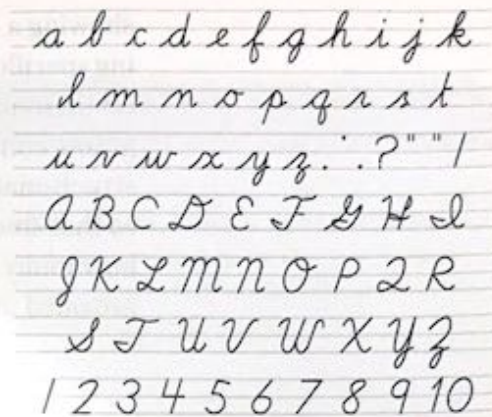 a b c d e f g h i j k
l m n o p q r s t
u v w x y z . ' . ? " " /
A B C D E F G H I
J K L M N O P Q R
S T U V W X Y Z
1 2 3 4 5 6 7 8 9 10